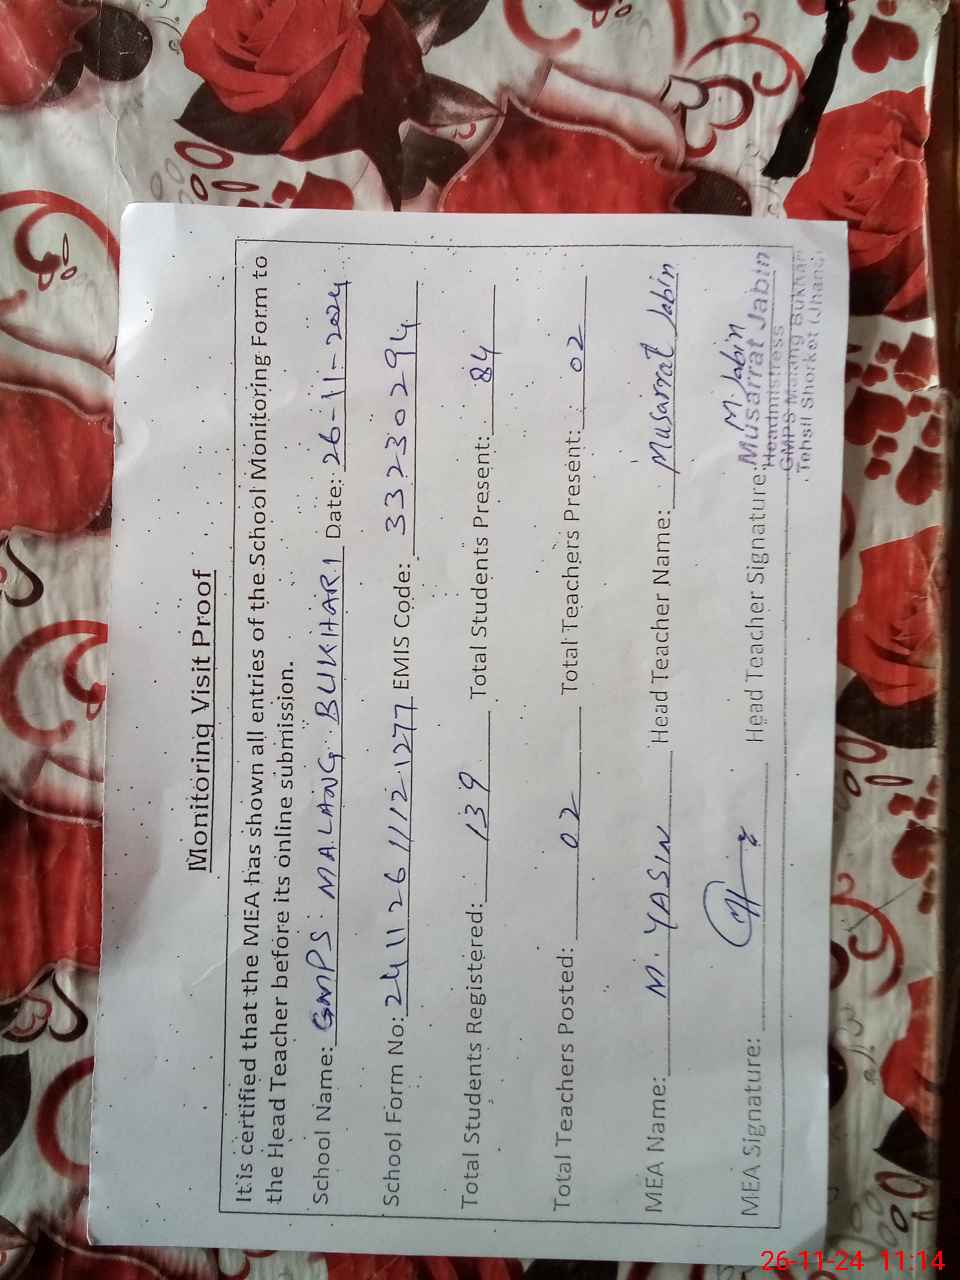 Monitoring Visit Proof
It is certified that the MEA has shown all entries of the School Monitoring Form to
the Head Teacher before its online submission.
School Name: GMPS MALANG BUKHARI Date: 26-11-2024
School Form No: 24112611121277 EMIS Code: 33230294
Total Students Registered: 139 Total Students Present: 84
Total Teachers Posted: 02 Total Teachers Present: 02
MEA Name: M. YASIN Head Teacher Name: Musarrat Jabin
MEA Signature: Head Teacher Signature: M. Jabin
Musarrat Jabin
Headmistress
GMPS Malang Bukhari
Tehsil Shorkot (Jhang)
26-11-24 11:14